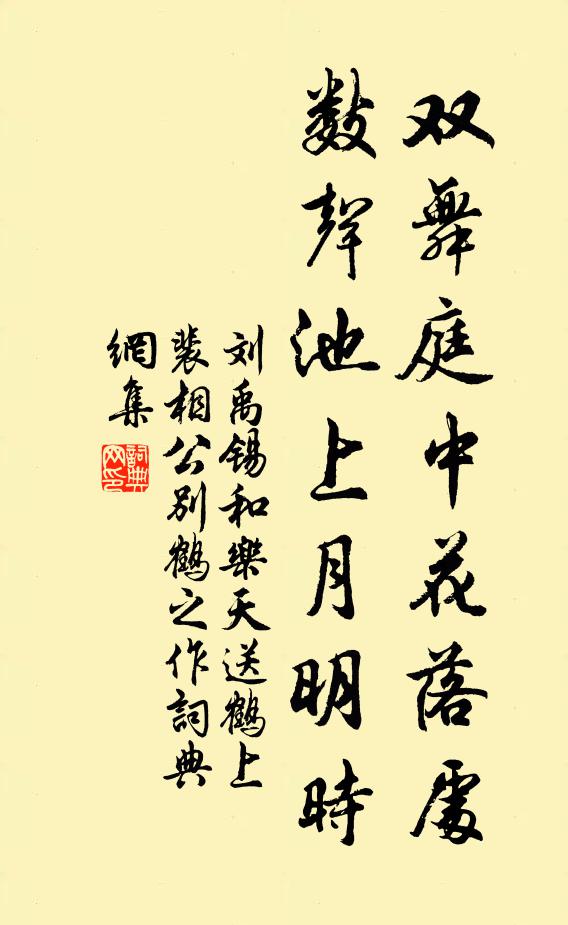 双舞庭中花落處
數聲池上月明時
刘禹锡和樂天送鶴上
裴相公别鶴之作詞典
網集
詞典
网印